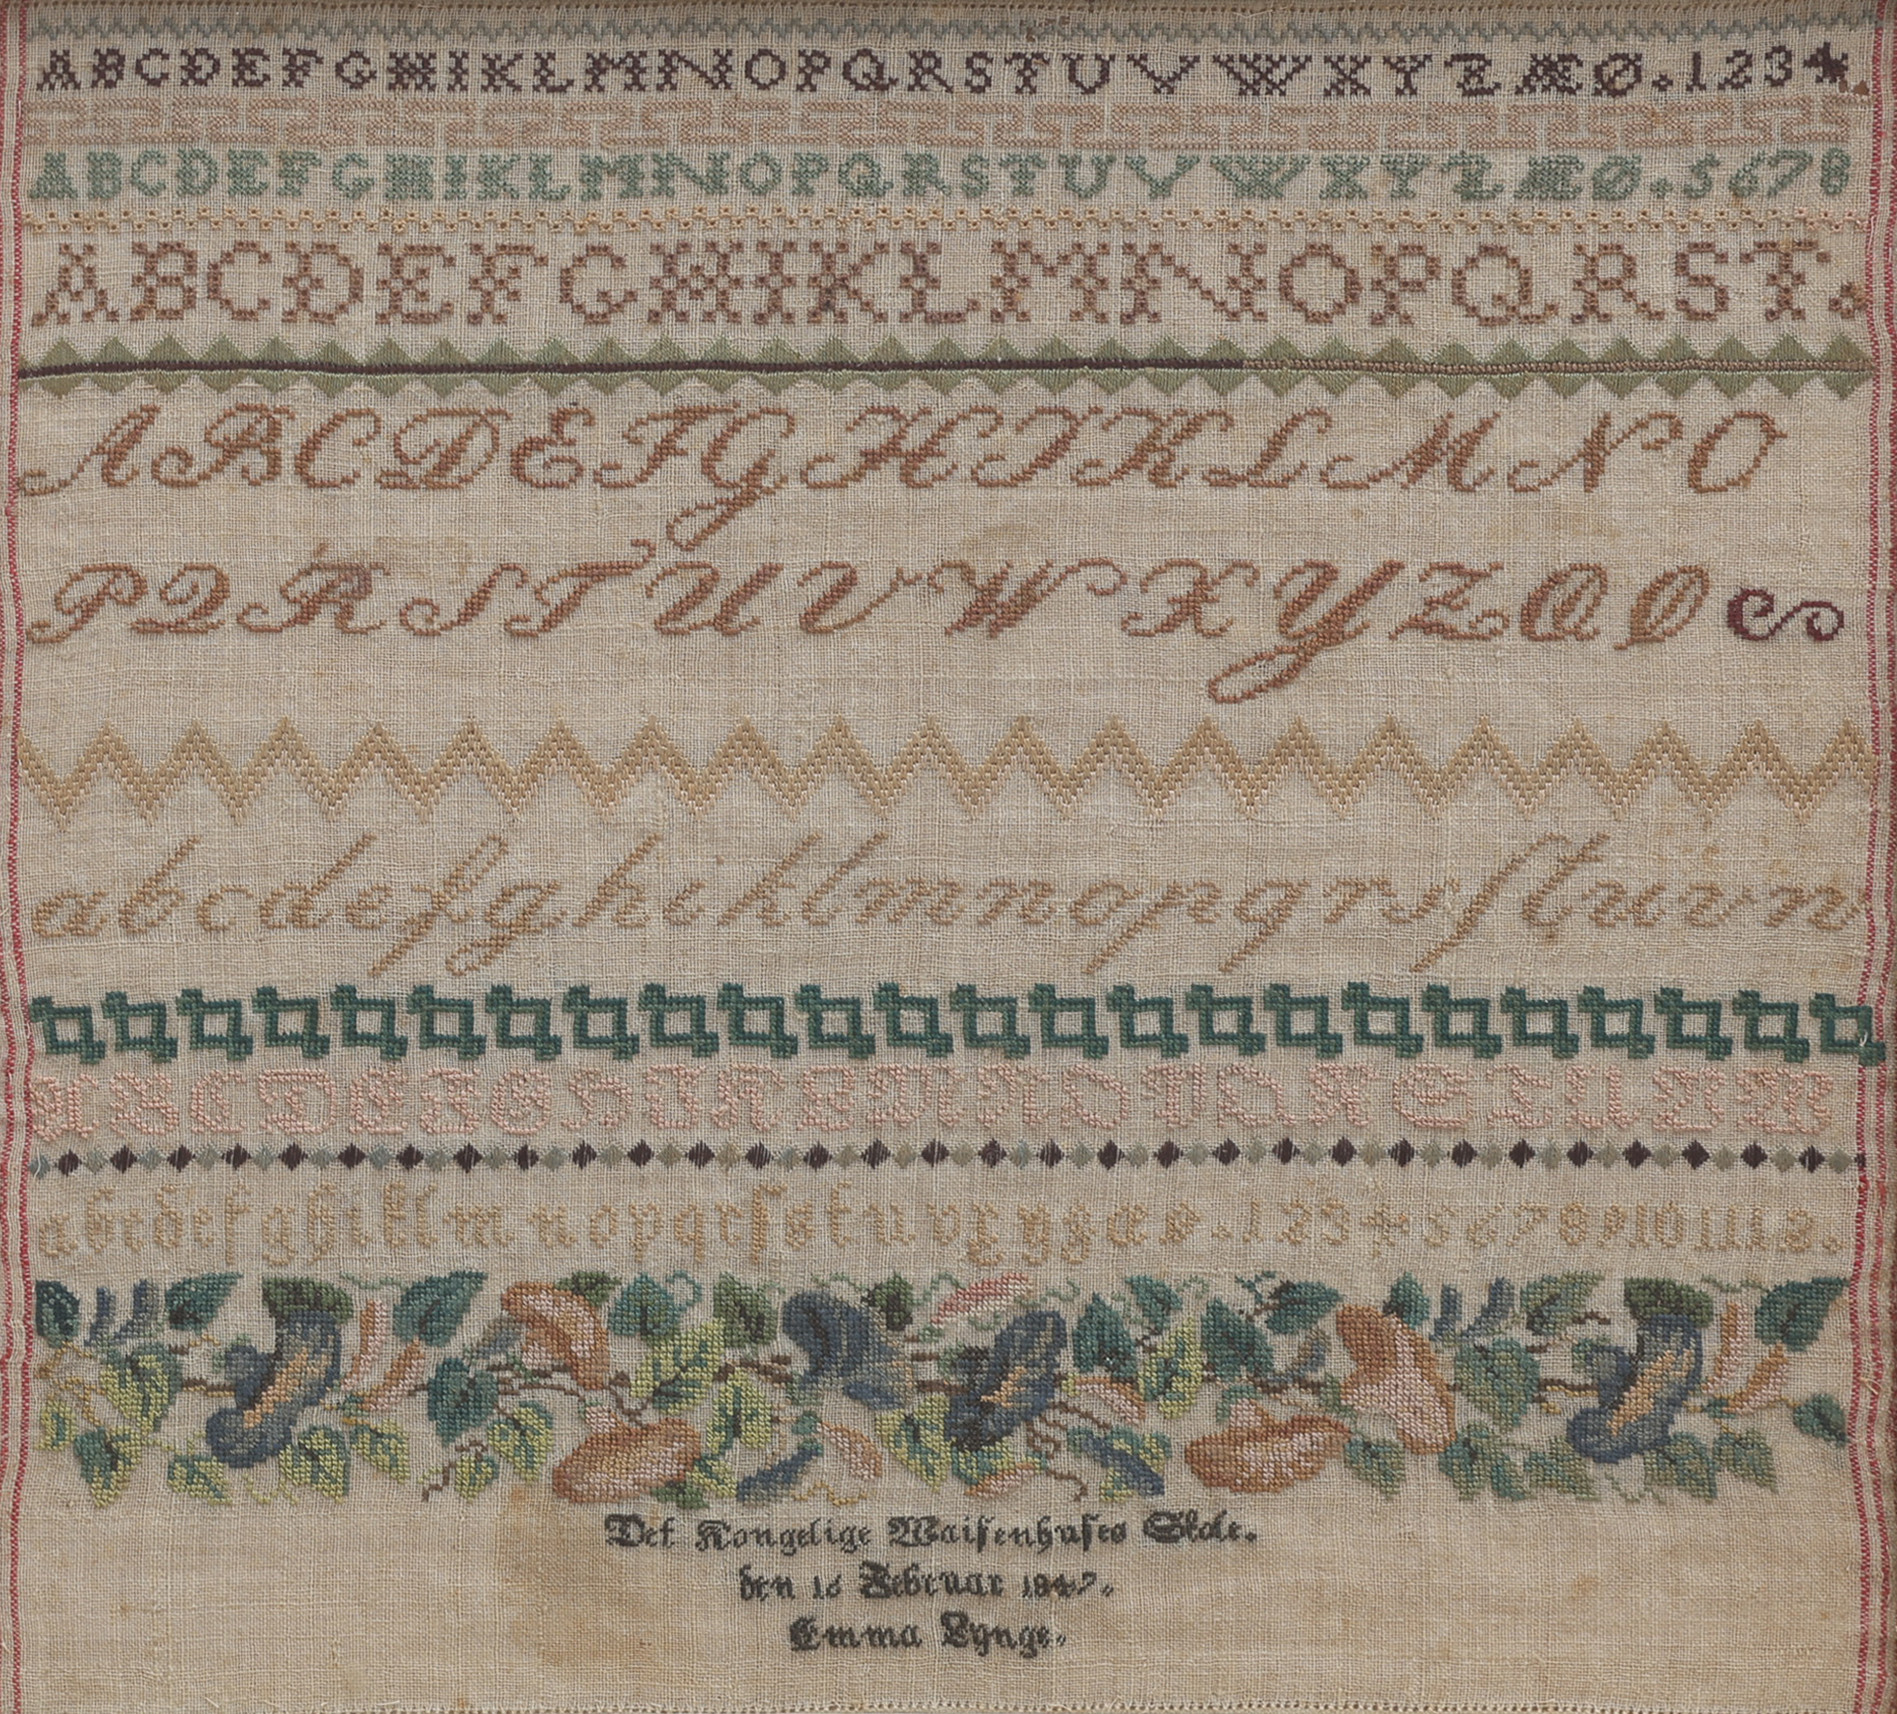 ABCDEFGHIKLMNOPQRSTUVWXYZÆØ.1234
ABCDEFGHIKLMNOPQRSTUVWXYZÆØ.5678
ABCDEFGHIKLMNOPQRST.
ABCDEFGHIKLMNO
PQRSTUVWXYZÆØ
abcdefghiklmnopqrsſtuvw
ABCDEFGHIKLMNOPQRSTUVW
abcdefghiklmnopqrſstuvxyzæø.123456789101112.
Det Kongelige Waiſenhuſes Skole.
den 16 Februar 1847.
Emma Lynge.